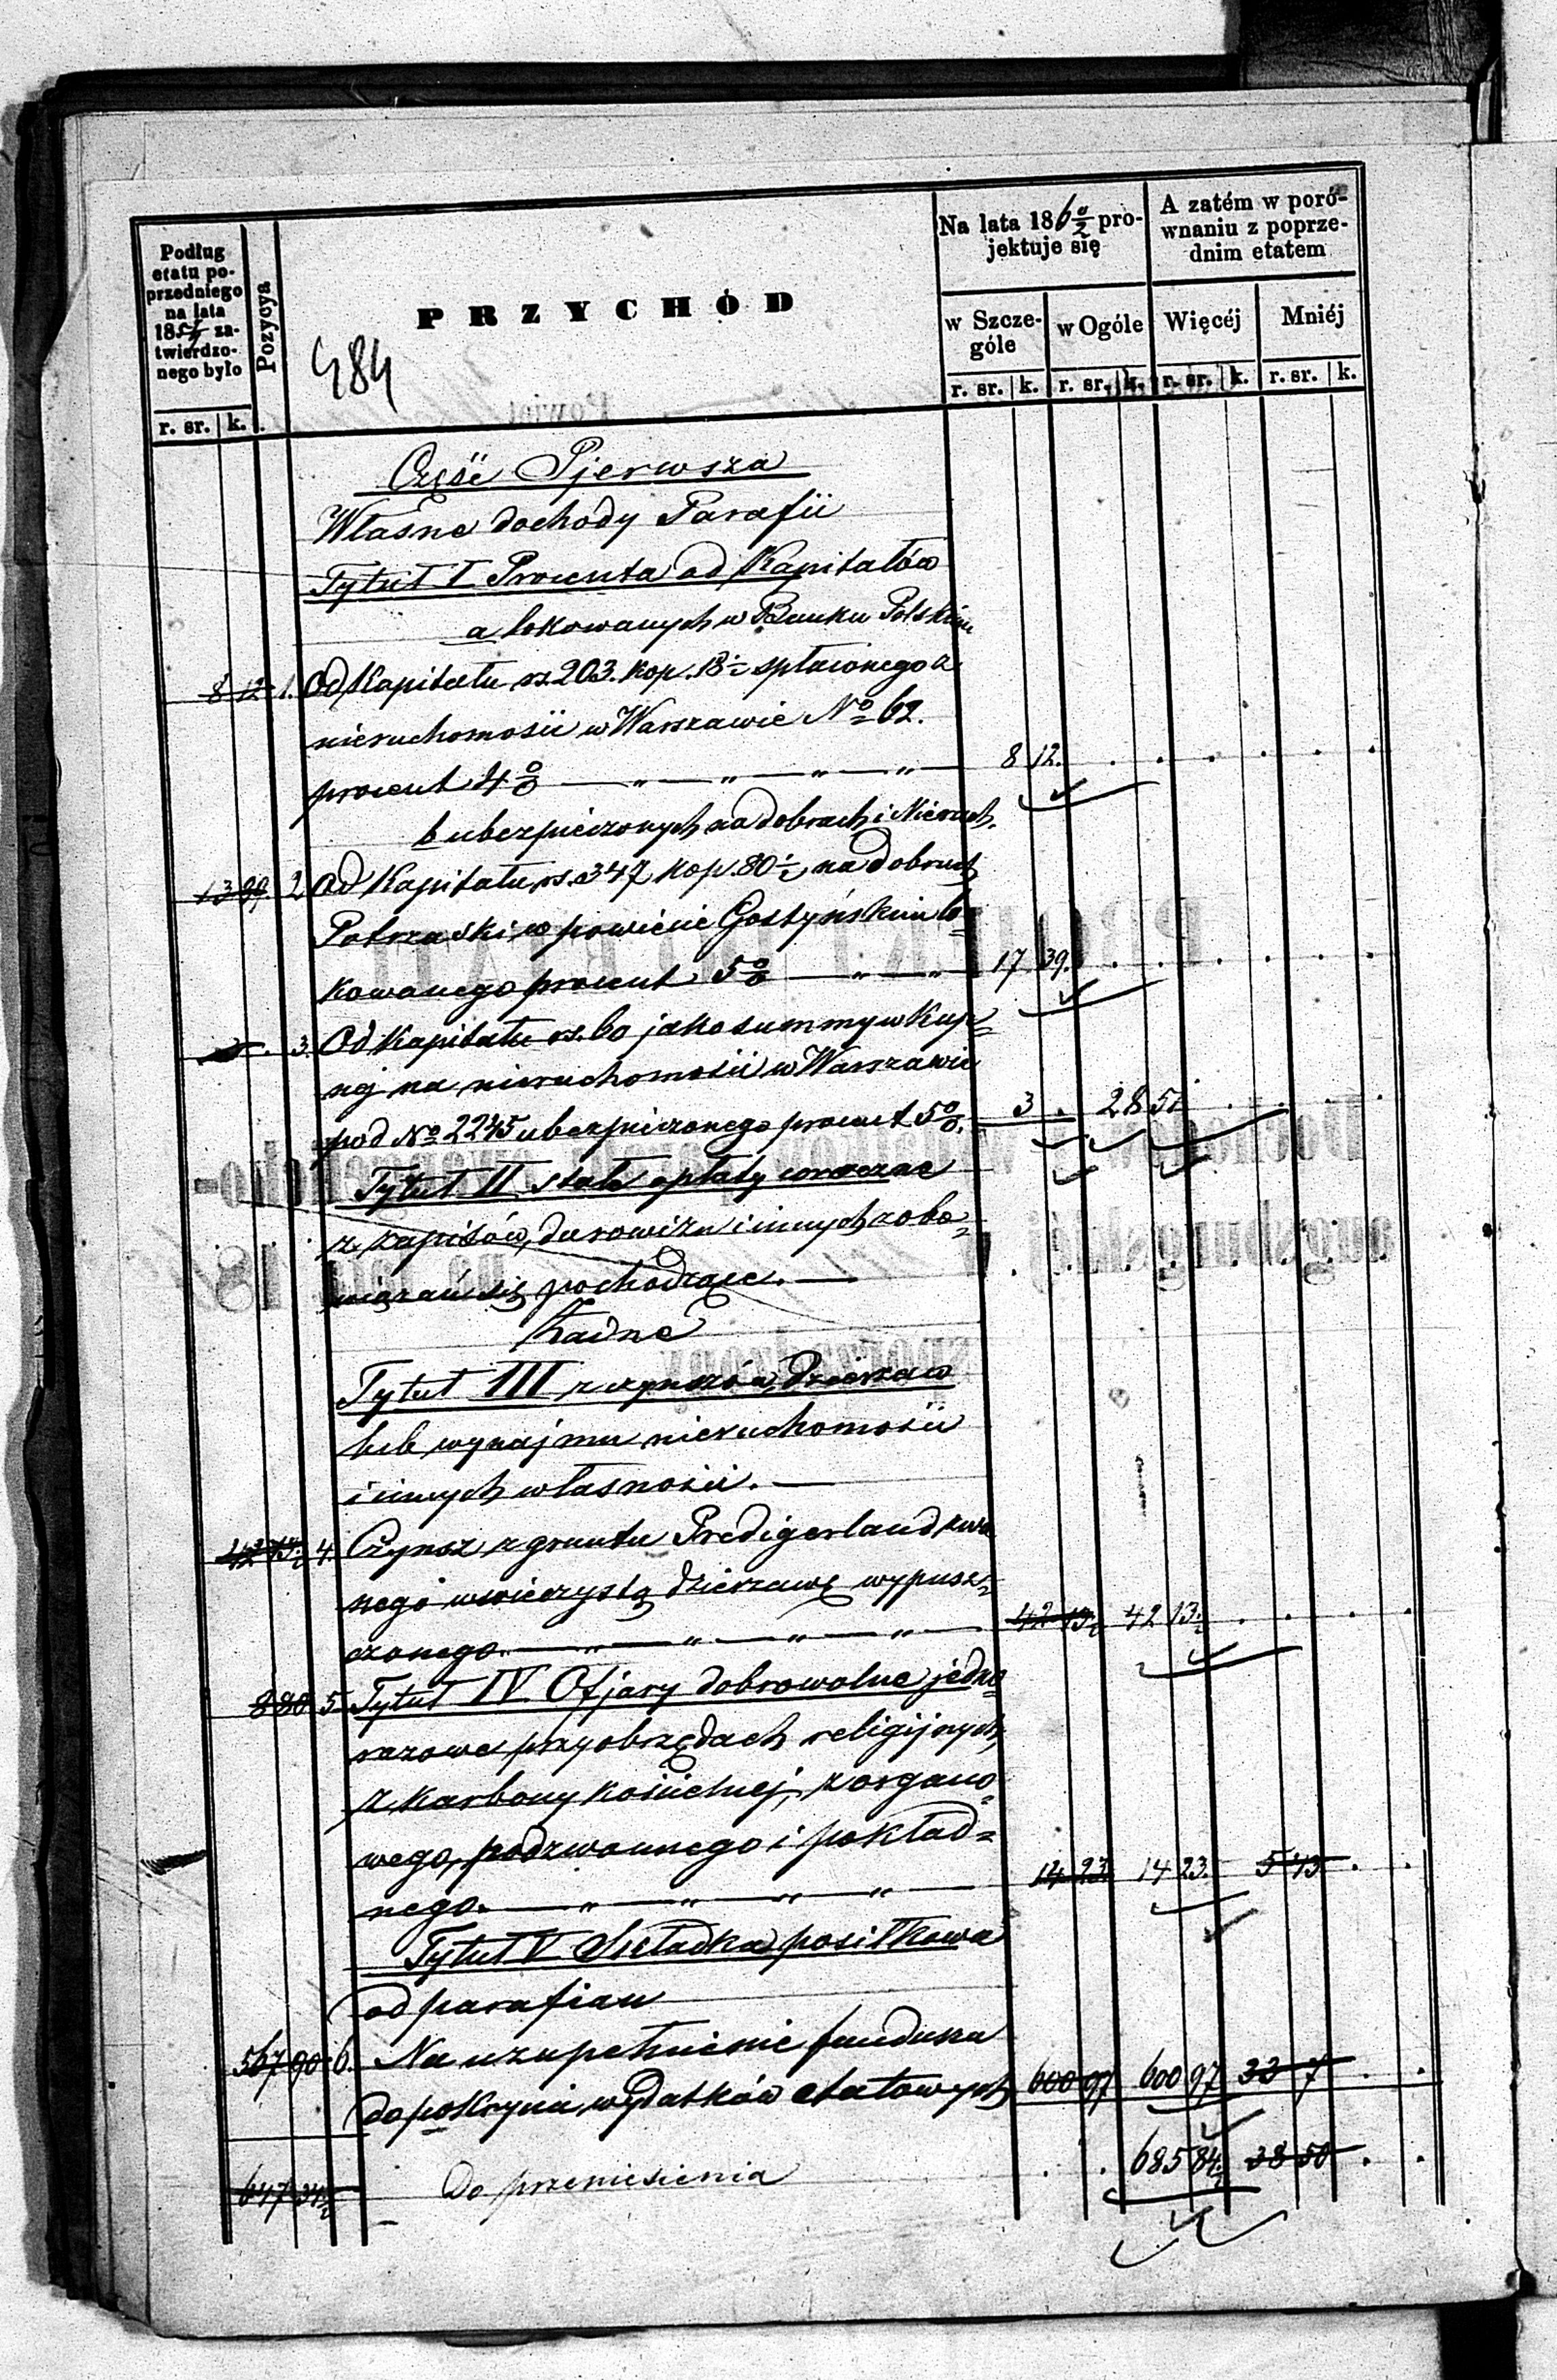 Podług etatu poprzedniego na lata 185 zatwierdzonego było
Pozycya
PRZYCHÓD
Na lata 186 0/2 projektuje się
A zatém w porównaniu z poprzednim etatem
w Szczególe
w Ogóle
Więcéj
Mniéj
r. sr. k. r. sr. k. r. sr. k. r. sr. k. r. sr. k.
484
Część Pjerwsza
Własne dochody Parafii
Tytuł I Procenta od Kapitałów
a lokowanych w Banku Polskim
8 12 1. Od Kapitału rs. 203. kop. 18 1/2 spłaconego z
nieruchomości w Warszawie No 62.
procent 4% — „ — „ — „ — „ — 8 12.
b ubezpieczonych na dobrach i Nieruch.
13 99. 2. Od Kapitału rs. 347 kop. 80 1/2 na dobrach
w powiecie Gostyńskim lo=
kowanego procent 5% — „ — „ 17 39.
3. Od Kapitału rs. 60 jako summy wkup=
nej na nieruchomości w Warszawie
pod No 2245 ubezpieczonego procent 5%. 3 . 28 51
Tytuł II stałe opłaty wieczne
z zapisów, darowizn i innych zobo=
wiązań się pochodzące. —
Żadne
Tytuł III z czynszów, Dzierżaw
lub wynajmu nieruchomości
i innych własności. —
42 13 1/2 4. Czynsz z gruntu Predigerland zwa
nego w wieczystą dzierżawę wypusz=
czonego. — „ — „ — „ — „ — 42 13 1/2 42 13 1/2
8 80 5. Tytuł IV Ofjary dobrowolne jedno
razowe przy obrzędach religijnych,
z karbony kościelnej, z organo=
wego, podzwonnego i pokład=
nego. — „ — „ — „ — „ — 14 23. 14 23. 5 43
Tytuł V Składka posiłkowa
od parafian
567 90 6. Na uzupełnienie funduszu
do pokrycia wydatków etatowych 600 97 600 97 33 7
647 34 1/2 Do przeniesienia 685 84 1/2 38 50